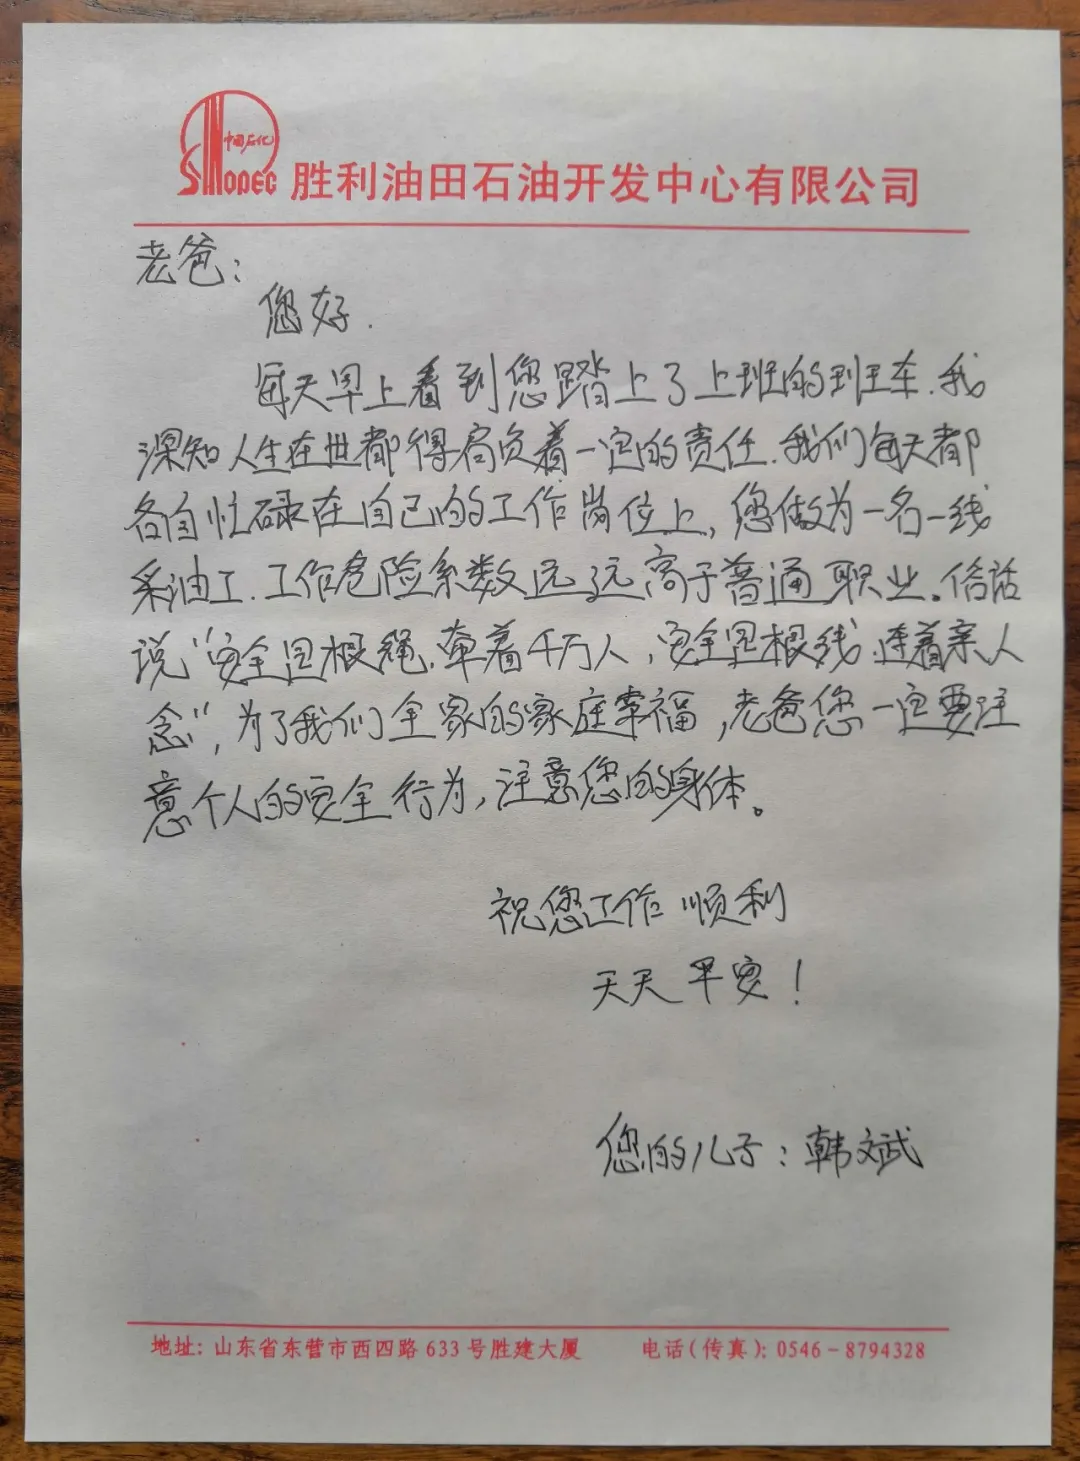 中国石化
SINOPEC 胜利油田石油开发中心有限公司
老爸：
您好.
每天早上看到您踏上了上班的班车.我
深知人生在世都得肩负着一定的责任.我们每天都
各自忙碌在自己的工作岗位上，您做为一名一线
采油工.工作危险系数远远高于普通职业。俗话
说“安全是根绳.牵着千万人，安全是根线.连着亲人
念”，为了我们全家的家庭幸福，老爸您一定要注
意个人的安全行为，注意您的身体。
祝您工作顺利
天天平安！
您的儿子：韩斌
地址：山东省东营市西四路633号胜建大厦 电话（传真）：0546－8794328